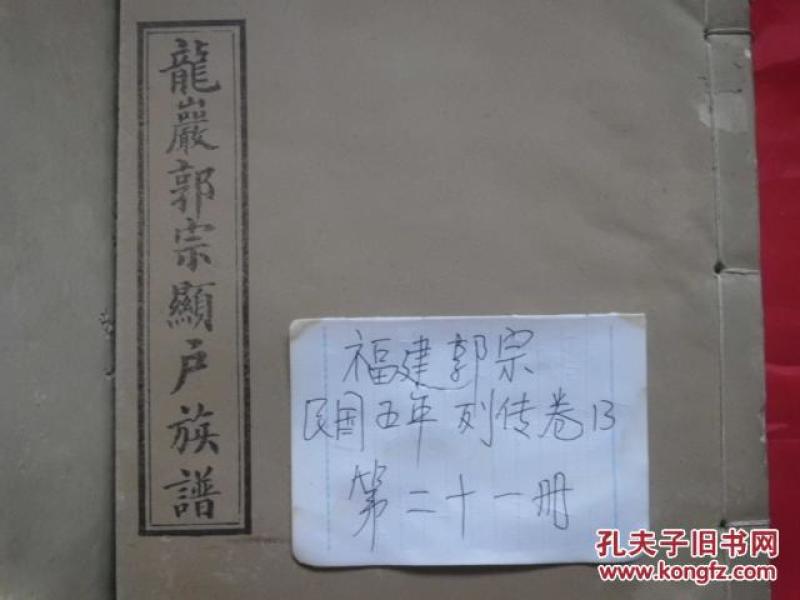 龍巖郭宗顯户族譜
福建郭宗
民国五年 列传卷13
第二十一册
孔夫子旧书网
www.kongfz.com